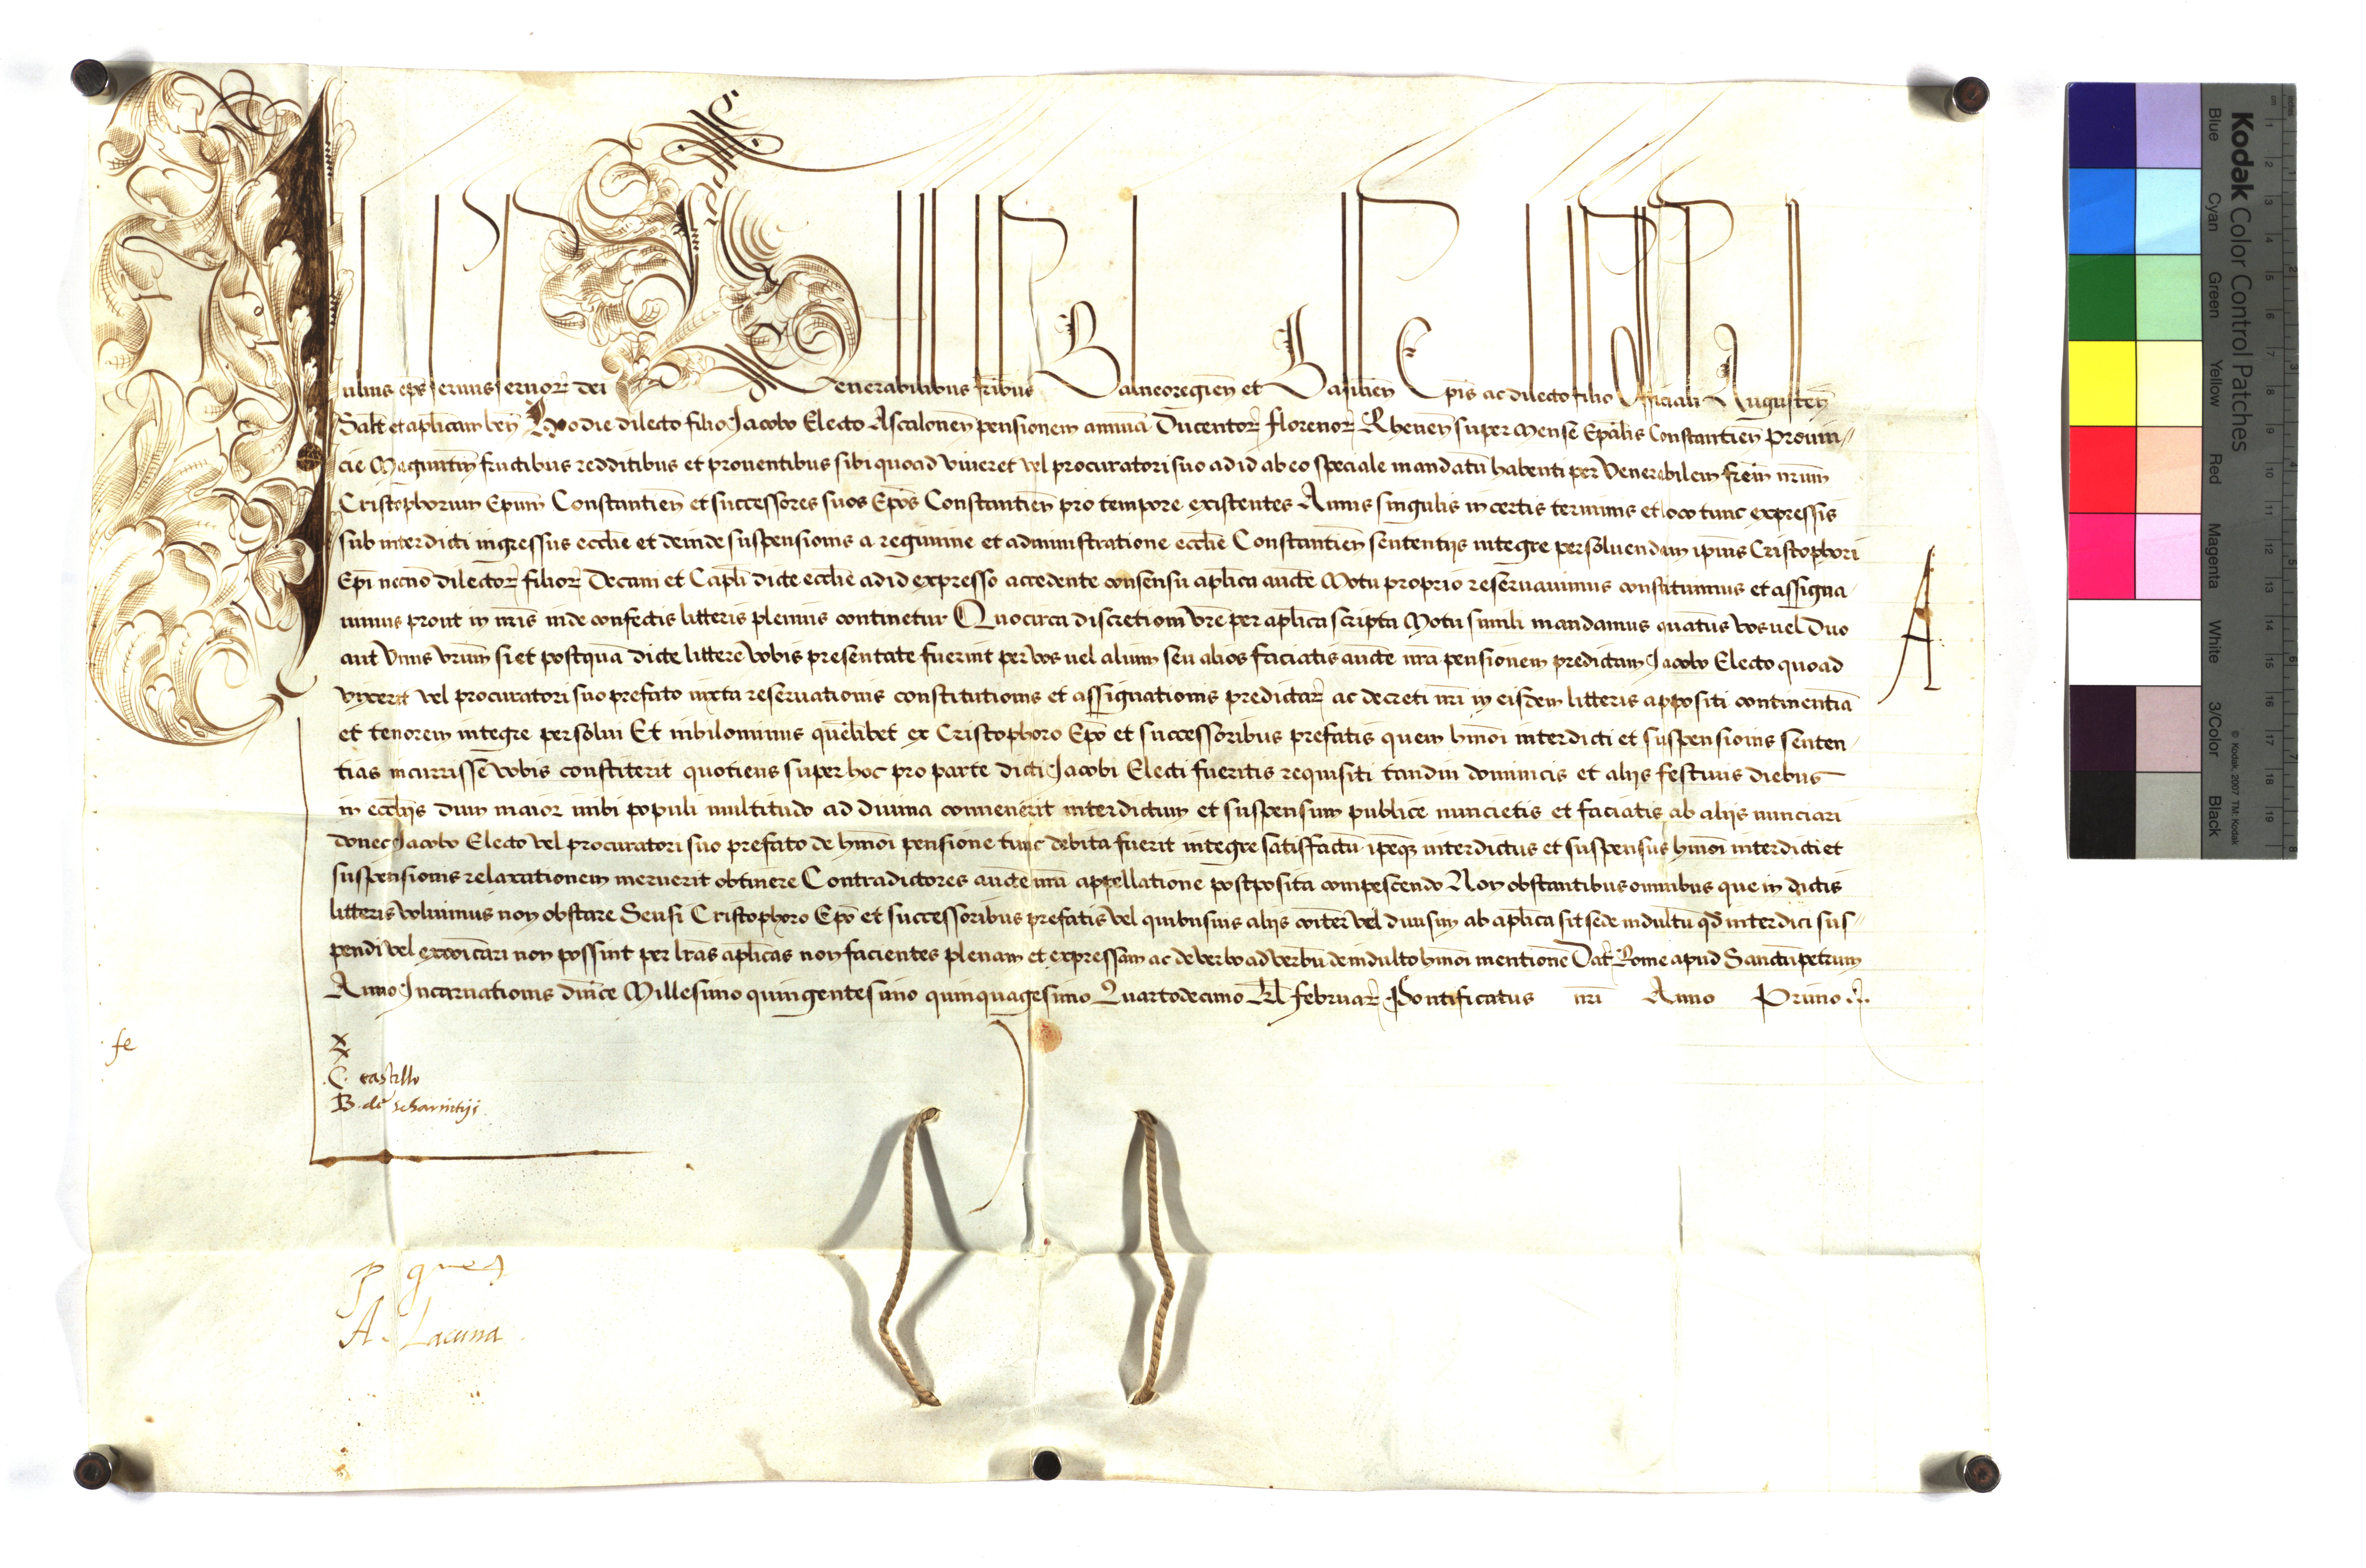 Julius eps servus servor dei Venerabilibus fribus Balneoregien et Basilien Epis ac dilecto filio Officiali Augusten
Salt et aplicam ben Hodie dilecto filio Jacobo Electo Ascalonen pensionem annuā Ducentor florenor Rhenen super Mense Epalis Constantien Provin//
cie Maguntin fructibus redditibus et proventibus sibi quoad viveret vel procuratori suo ad id ab eo speciale mandatū habenti per Venerabilem frem nrum
Cristophorum Epum Constantien et successores suos Epos Constantien pro tempore existentes Annis singulis in certis terminis et loco tunc expressis
sub interdicti ingressus ecclie et deinde suspensionis a regimine et administratione ecclie Constantien sententijs integre persolvendam ipius Cristophori
Epi necnō dilector filior Decani et Capli dicte ecclie ad id expresso accedente consensu aplica aucte Motu proprio reservavimus constituimus et assigna-
vimus prout in nris inde confectis litteris plenius continetur Quocirca discretioni vre per aplica scripta Motu simili mandamus quatus vos vel Duo
aut Unus vrum si et postquā dicte littere vobis presentate fuerint per vos vel alium seu alios faciatis aucte nra pensionem predictam Jacobo Electo quoad
vixerit vel procuratori suo prefato iuxta reservationis constitutionis et assignationis predictar ac decreti nri in eisdem litteris appositi continentiā
et tenorem integre persolvi Et nihilominus quēlibet ex Cristophoro Epo et successoribus prefatis quem hmoi interdicti et suspensionis senten-
tias incurrisse vobis constiterit quotiens super hoc pro parte dicti Jacobi Electi fueritis requisiti tandiu dominicis et alijs festivis diebus
in ecclijs dum maior inibi populi multitudo ad divina convenerit interdictum et suspensum publice nuncietis et faciatis ab alijs nunciari
donec Jacobo Electo vel procuratori suo prefato de hmoi pensione tunc debita fuerit integre satisfactū ipeq interdictus et suspensus hmoi interdicti et
suspensionis relaxationem meruerit obtinere Contradictores aucte nra appellatione postposita compescendo Non obstantibus omnibus que in dictis
litteris volumus non obstare Seu si Cristophoro Epo et successoribus prefatis vel quibusvis alijs coiter vel divisim ab aplica sit sede indultū qd interdici sus//
pendi vel excoicari non possint per lras aplicas non facientes plenam et expressam ac de verbo ad verbū de indulto hmoi mentionē Dat Rome apud Sanctūpetrum
Anno Incarnationis dnice Millesimo quingentesimo quinquagesimo Quartodecimo Kl februar Pontificatus nri Anno Primo
A
fe
X
X
C. castillo
B. de
P
A. Lacuna
Kodak Color Control Patches
Blue Cyan Green Yellow Red Magenta White 3/Color Black
© Kodak, 2007 TM: Kodak
inches 1 2 3 4 5 6 7 8
cm 1 2 3 4 5 6 7 8 9 10 11 12 13 14 15 16 17 18 19